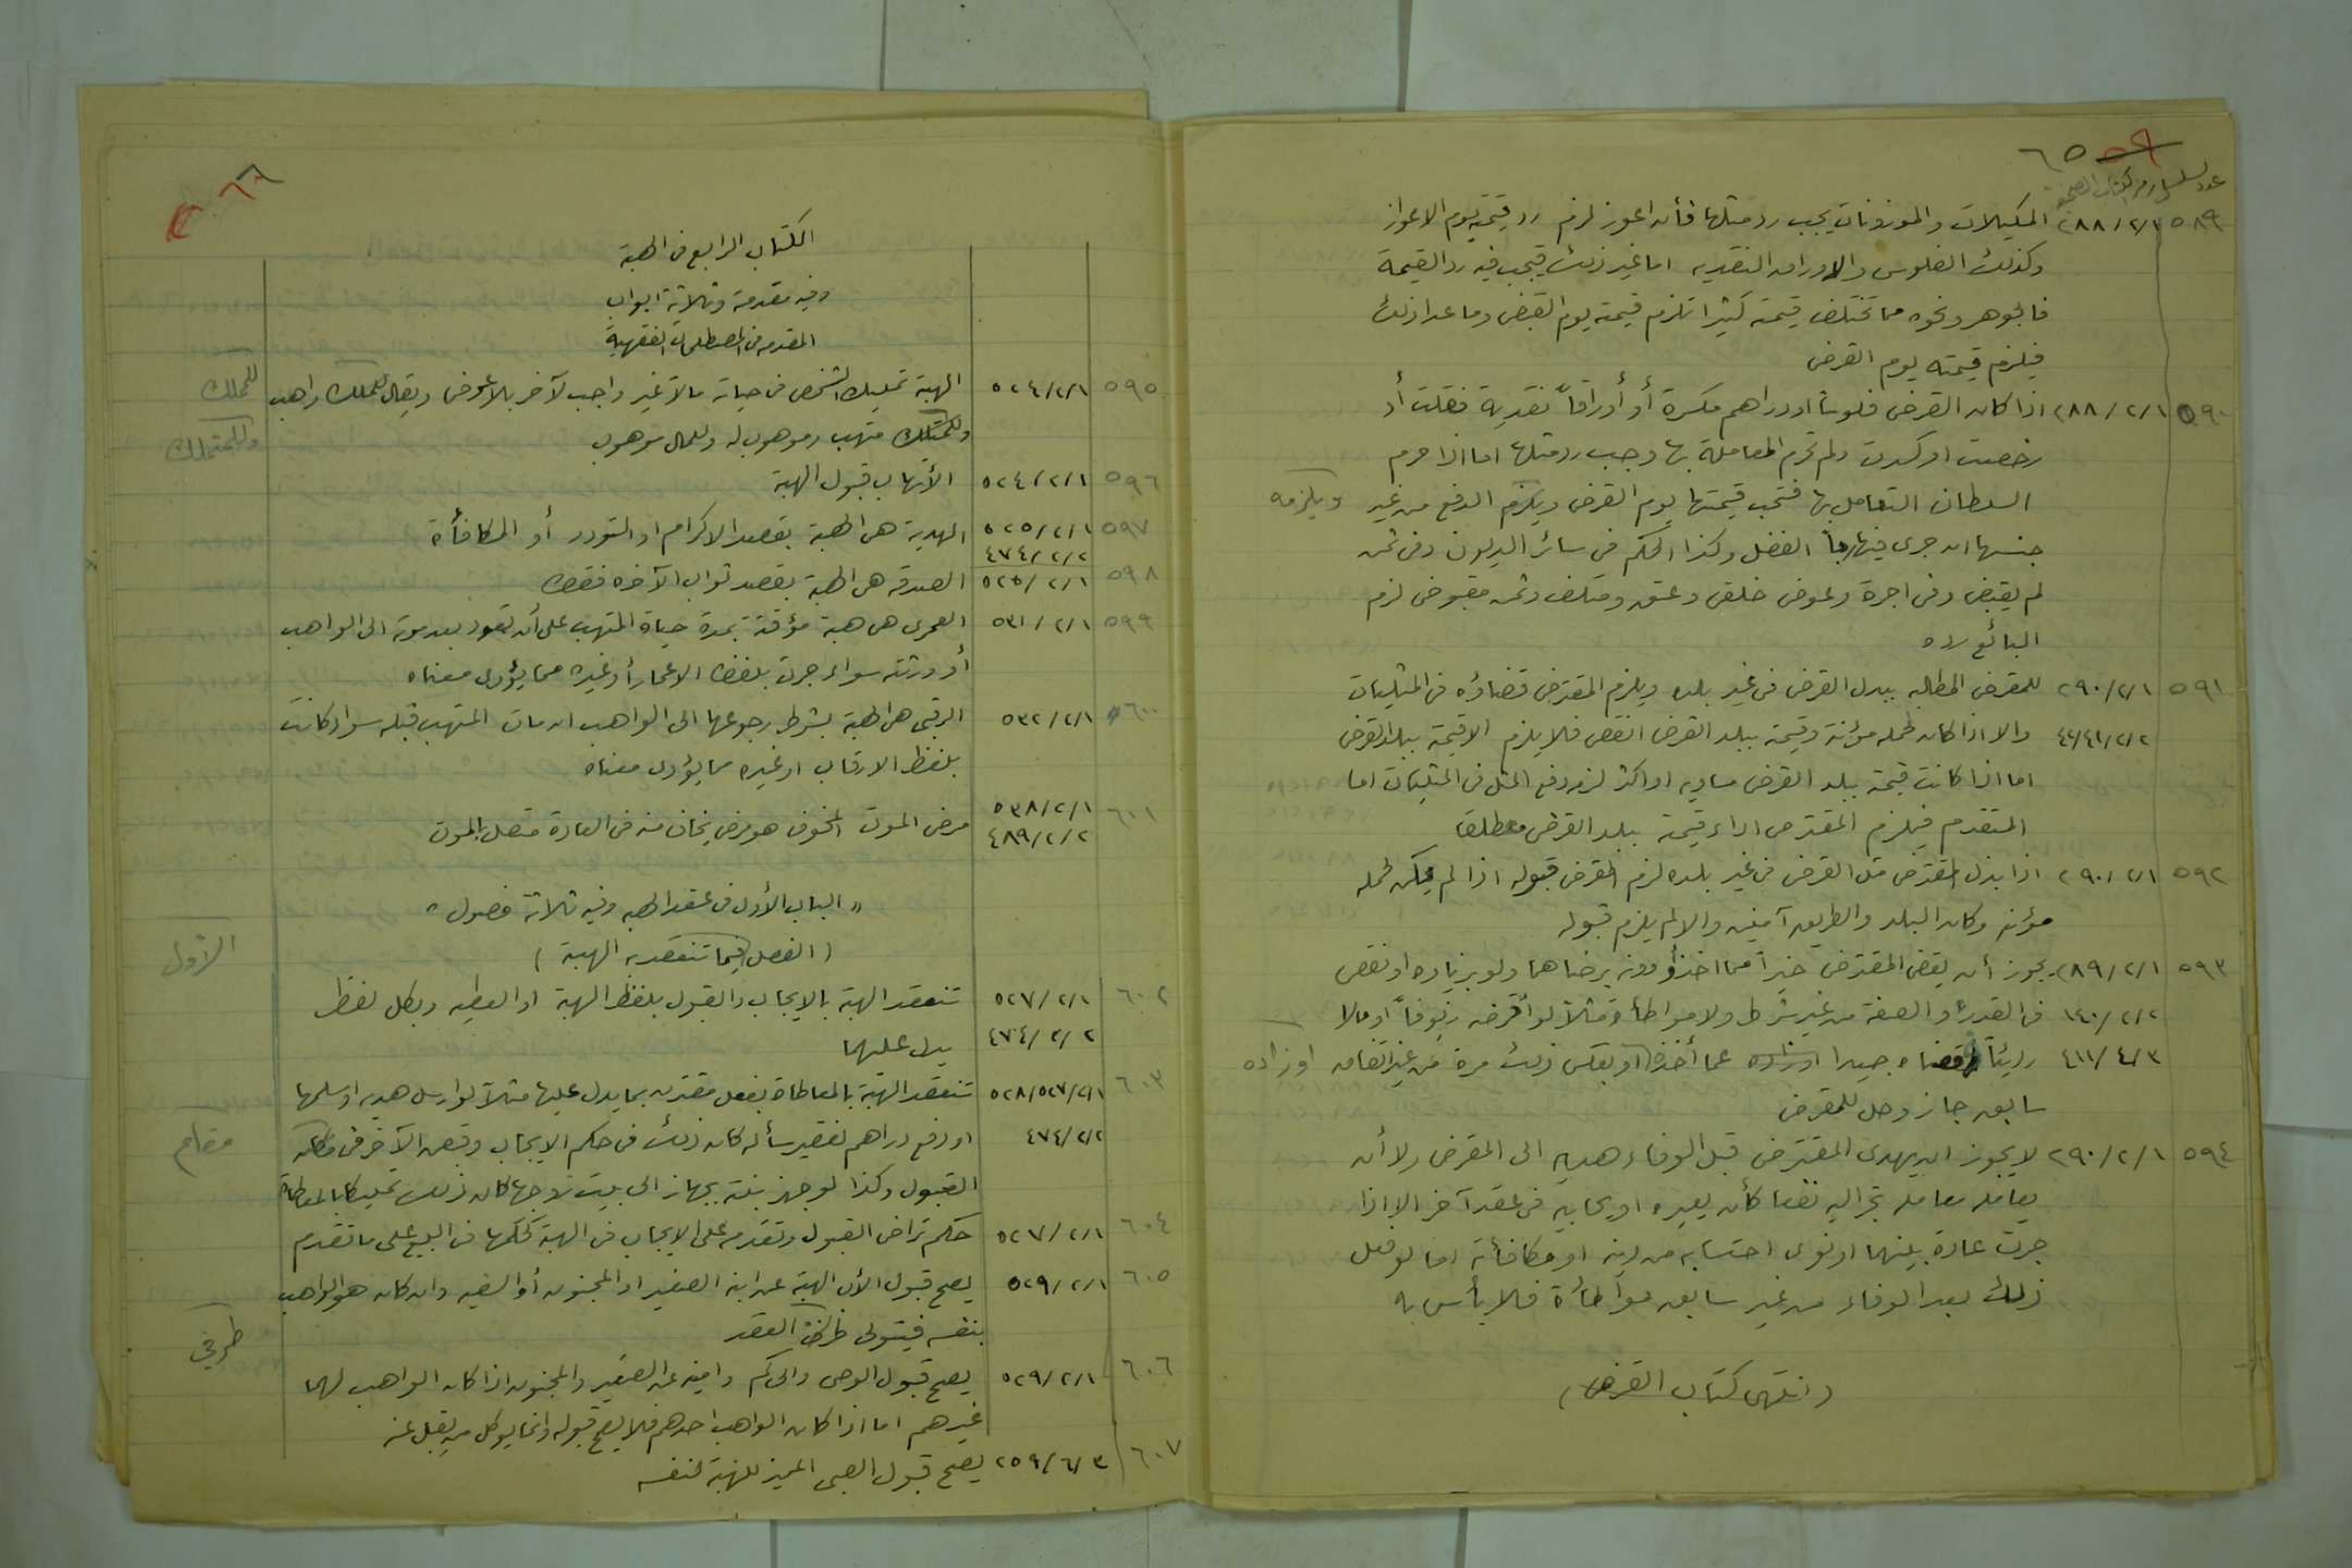 ٥٩ ٦٥
عدد تسلسل رقم الكتاب الصحيفة
٥٨٩ ٢٨٨/٢/١ المكيلات والموزونات يجب رد مثلها فأن اعوز لزم رد قيمته يوم الاعواز
وكذلك الفلوس والاوراق النقديه اما غير ذلك فيجب فيه رد القيمة
فالجوهر ونحوه مما تختلف قيمته كثيرا تلزم قيمته يوم القبض وما عدا ذلك
فيلزم قيمته يوم القرض
٥٩٠ ٢٨٨/٢/١ اذا كان القرض فلوسا او دراهم مكسرة أو أوراقاً نقدية فغلت أو
رخصت او كسدت ولم تحرم المعاملة بها وجب رد مثلها اما اذا حرم
السلطان التعامل بها فتجب قيمتها يوم القرض ويلزم الدفع من غير ويلزمه
جنسها ان جرى فيها ربا الفضل وكذا الحكم في سائر الديون وفي ثمن
لم يقبض وفي اجرة وعوض خلع وعتق ومتلف وثمن مقبوض لزم
البائع رده
٥٩١ ٢٩٠/٢/١ للمقرض المطالبه ببدل القرض في غير بلده ويلزم المقترض قضاؤه في المثليات
٤٢/٤١/٢/٢ والا اذا كان لحمله مؤنة وقيمته ببلد القرض انقص فلا يلزم الا قيمته ببلد القرض
اما اذا كانت قيمته ببلد القرض مساويه او اكثر لزم دفع المثل في المثليات اما
المتقدم فيلزم المقترض اداء قيمته ببلد القرض مطلقا
٥٩٢ ٢٩٠/٢/١ اذا بذل المقترض مثل القرض في غير بلده لزم المقرض قبوله اذا لم يكن لحمله
مؤنه وكان البلد والطريق آمنين والا لم يلزم قبوله
٥٩٣ ٢٨٩/٢/١ يجوز أن يقضي المقترض خيراً مما اخذ أو دونه برضاهما ولو بزياده او نقص
١٤٠/٢/٢ في القدر أو الصفة من غير شرط ولا مواطأة مثلاً لو أقرضه زيوفاً او مالا
٤١١/٤/٣ رديئاً فقضاه جيدا او زاده عما أخذ او بعكس ذلك مرة من غير اتفاق او زاده
سابق جاز وحل للمقرض
٥٩٤ ٢٩٠/٢/١ لا يجوز ان يهدي المقترض قبل الوفاء هديه الى المقرض ولا أن
يعامله معامله تجر اليه نفعا كأن يعيره او يحابيه في عقد آخر الا اذا
جرت عادة بينهما او نوى احتسابه من دينه او مكافأته اما لو فعل
ذلك بعد الوفاء من غير سابق مواطأة فلا بأس به
(انتهى كتاب القرض)
٦٦
الكتاب الرابع في الهبة
وفيه مقدمة وثلاثة ابواب
المقدمه في المصطلحات الفقهية
٥٩٥ ٥٢٤/٢/١ الهبة تمليك الشخص في حياته مالا غير واجب لآخر بلا عوض ويقال للملك واهب للمملك
وللمتملك متهب وموهوب له وللمال موهوب وللمتملك
٥٩٦ ٥٢٤/٢/١ الأتهاب قبول الهبة
٥٩٧ ٥٢٥/٢/١ الهدية هي الهبة بقصد الاكرام او التودد أو المكافأة
٤٧٤/٢/٢
٥٩٨ ٥٢٥/٢/١ الصدقة هي الهبة بقصد ثواب الآخره فقط
٥٩٩ ٥٣١/٢/١ العمرى هي هبة مؤقتة بمدة حياة المتهب على أن تعود بعد موته الى الواهب
أو ورثته سواء جرت بلفظ الاعمار أو غيره مما يؤدى معناه
٦٠٠ ٥٣٢/٢/١ الرقبى هي الهبة بشرط رجوعها الى الواهب ان مات المتهب قبله سواء كانت
بلفظ الارقاب او غيره مما يؤدى معناه
٦٠١ ٥٣٨/٢/١
٤٨٩/٢/٢ مرض الموت المخوف هو مرض يخاف منه في العادة متصل بالموت
« الباب الأول في عقد الهبه وفيه ثلاثة فصول »
(الفصل فيما تنعقد به الهبة) الأول
٦٠٢ ٥٢٧/٢/١ تنعقد الهبة بالايجاب والقبول بلفظ الهبة او العطيه وبكل لفظ
٤٧٤/٢/٢ يدل عليهما
٦٠٣ ٥٢٨/٥٢٧/٢/١ تنعقد الهبة بالمعاطاة بفعل مقترن بما يدل عليها مثلاً لو ارسل هديه او سلمها
٤٧٤/٢/٢ او دفع دراهم لفقير سأله كان ذلك في حكم الايجاب وقبض الآخر في مقام
القبول وكذا لو جهز بنته بجهاز الى بيت زوجها كان ذلك تمليكا بالمعاطاة
٦٠٤ ٥٢٧/٢/١ حكم تراخي القبول وتقدمه على الايجاب في الهبة كحكمها في البيع على ما تقدم
٦٠٥ ٥٢٩/٢/١ يصح قبول الأب الهبة عن ابنه الصغير او المجنون أو السفيه وان كان هو الواهب
بنفسه فيتولى طرفي العقد طرفي
٦٠٦ ٥٢٩/٢/١ يصح قبول الوصي والحاكم وامينه عن الصغير والمجنون اذا كان الواهب لهما
غيرهم اما اذا كان الواهب احدهم فلا يصح قبوله وانما يوكل من يقبل عنه
٦٠٧ ٢٥٩/٦/٣ يصح قبول الصبى المميز للهبة لنفسه